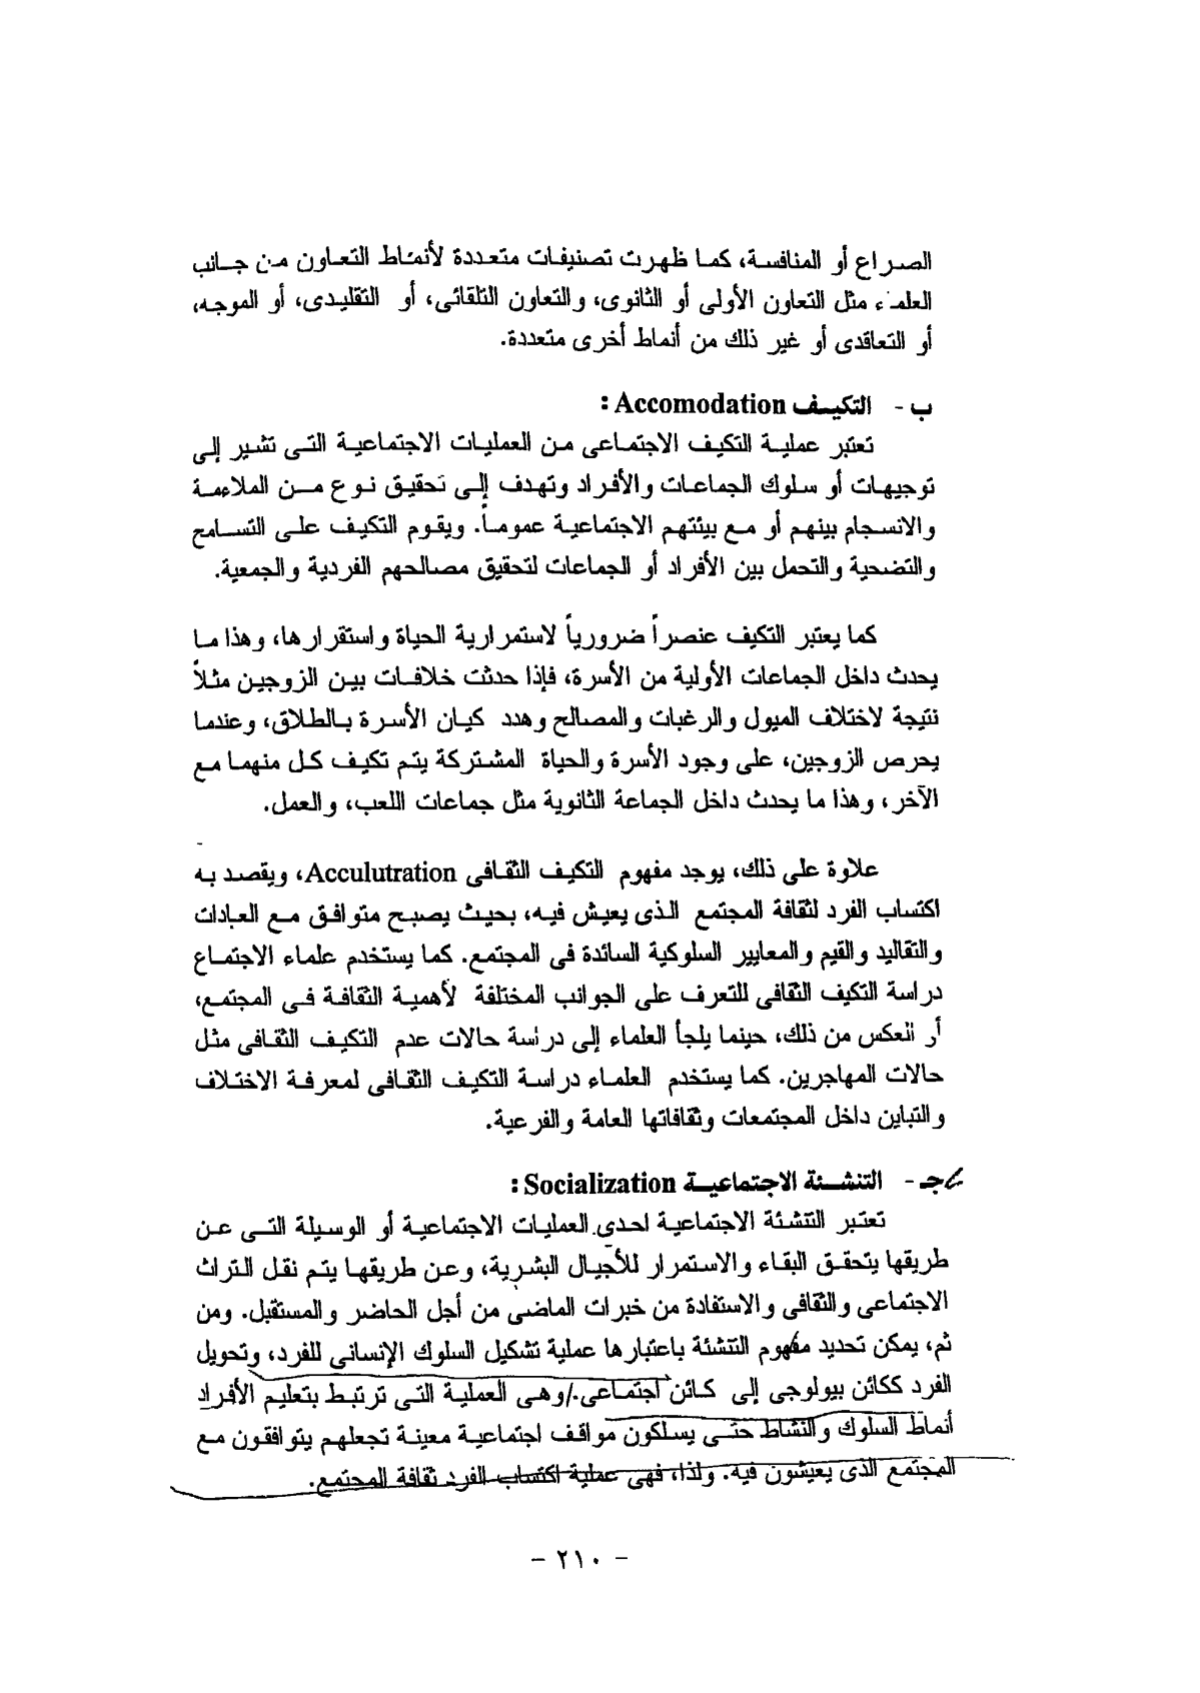 الصراع أو المنافسة، كما ظهرت تصنيفات متعددة لأنماط التعاون من جانب
العلماء مثل التعاون الأولى أو الثانوى، والتعاون التلقائى، أو التقليدى، أو الموجه،
أو التعاقدى أو غير ذلك من أنماط أخرى متعددة.
ب - التكيف Accomodation :
تعتبر عملية التكيف الاجتماعى من العمليات الاجتماعية التى تشير إلى
توجيهات أو سلوك الجماعات والأفراد وتهدف إلى تحقيق نوع من الملاءمة
والانسجام بينهم أو مع بيئتهم الاجتماعية عموماً. ويقوم التكيف على التسامح
والتضحية والتحمل بين الأفراد أو الجماعات لتحقيق مصالحهم الفردية والجمعية.
كما يعتبر التكيف عنصراً ضرورياً لاستمرارية الحياة واستقرارها، وهذا ما
يحدث داخل الجماعات الأولية من الأسرة، فإذا حدثت خلافات بين الزوجين مثلاً
نتيجة لاختلاف الميول والرغبات والمصالح وهدد كيان الأسرة بالطلاق، وعندما
يحرص الزوجين، على وجود الأسرة والحياة المشتركة يتم تكيف كل منهما مع
الآخر، وهذا ما يحدث داخل الجماعة الثانوية مثل جماعات اللعب، والعمل.
علاوة على ذلك، يوجد مفهوم التكيف الثقافى Acculutration، ويقصد به
اكتساب الفرد لثقافة المجتمع الذى يعيش فيه، بحيث يصبح متوافق مع العادات
والتقاليد والقيم والمعايير السلوكية السائدة فى المجتمع. كما يستخدم علماء الاجتماع
دراسة التكيف الثقافى للتعرف على الجوانب المختلفة لأهمية الثقافة فى المجتمع،
أو العكس من ذلك، حينما يلجأ العلماء إلى دراسة حالات عدم التكيف الثقافى مثل
حالات المهاجرين. كما يستخدم العلماء دراسة التكيف الثقافى لمعرفة الاختلاف
والتباين داخل المجتمعات وثقافاتها العامة والفرعية.
جـ - التنشئة الاجتماعية Socialization :
تعتبر التنشئة الاجتماعية احدى العمليات الاجتماعية أو الوسيلة التى عن
طريقها يتحقق البقاء والاستمرار للأجيال البشرية، وعن طريقها يتم نقل التراث
الاجتماعى والثقافى والاستفادة من خبرات الماضى من أجل الحاضر والمستقبل. ومن
ثم، يمكن تحديد مفهوم التنشئة باعتبارها عملية تشكيل السلوك الإنسانى للفرد، وتحويل
الفرد ككائن بيولوجى إلى كائن اجتماعى. وهى العملية التى ترتبط بتعليم الأفراد
أنماط السلوك والنشاط حتى يسلكون مواقف اجتماعية معينة تجعلهم يتوافقون مع
المجتمع الذى يعيشون فيه. ولذا، فهى عملية اكتساب الفرد ثقافة المجتمع.
- ٢١٠ -